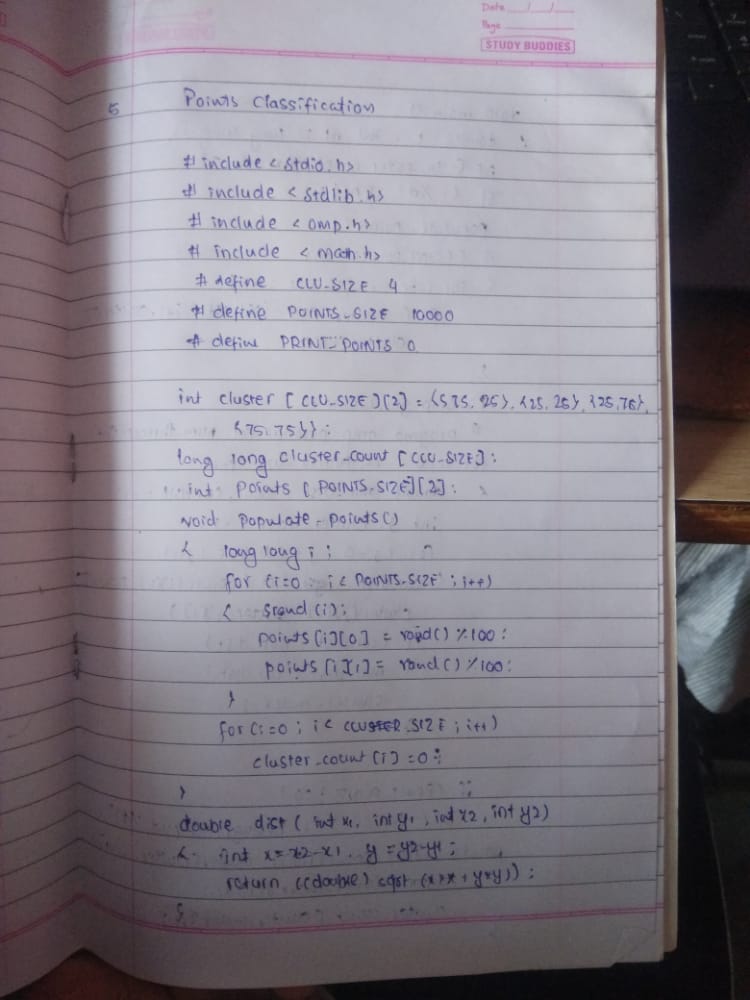 Date / /
Page
STUDY BUDDIES
5 Points Classification
# include < stdio.h>
# include < stdlib.h>
# include < omp.h>
# include < math.h>
# define CLU_SIZE 4
# define POINTS_SIZE 10000
# define PRINT_POINTS 0
int cluster [ CLU_SIZE ][2] = {{75, 25}, {25, 25}, {25,75},
{75,75}};
long long cluster_count [CLU_SIZE];
int points [ POINTS_SIZE][2];
void populate_points()
{ long long i ;
for (i=0 ; i < POINTS_SIZE ; i++)
{ srand (i);
points [i][0] = rand() % 100 ;
points [i][1] = rand() % 100;
}
for (i=0 ; i < SIZE ; i++)
cluster_count [i] =0 ;
}
double dist ( int x1, int y1 , int x2 , int y2)
{ int x = x2-x1, y = y2-y1 ;
return ((double) (x*x + y*y)) ;
}